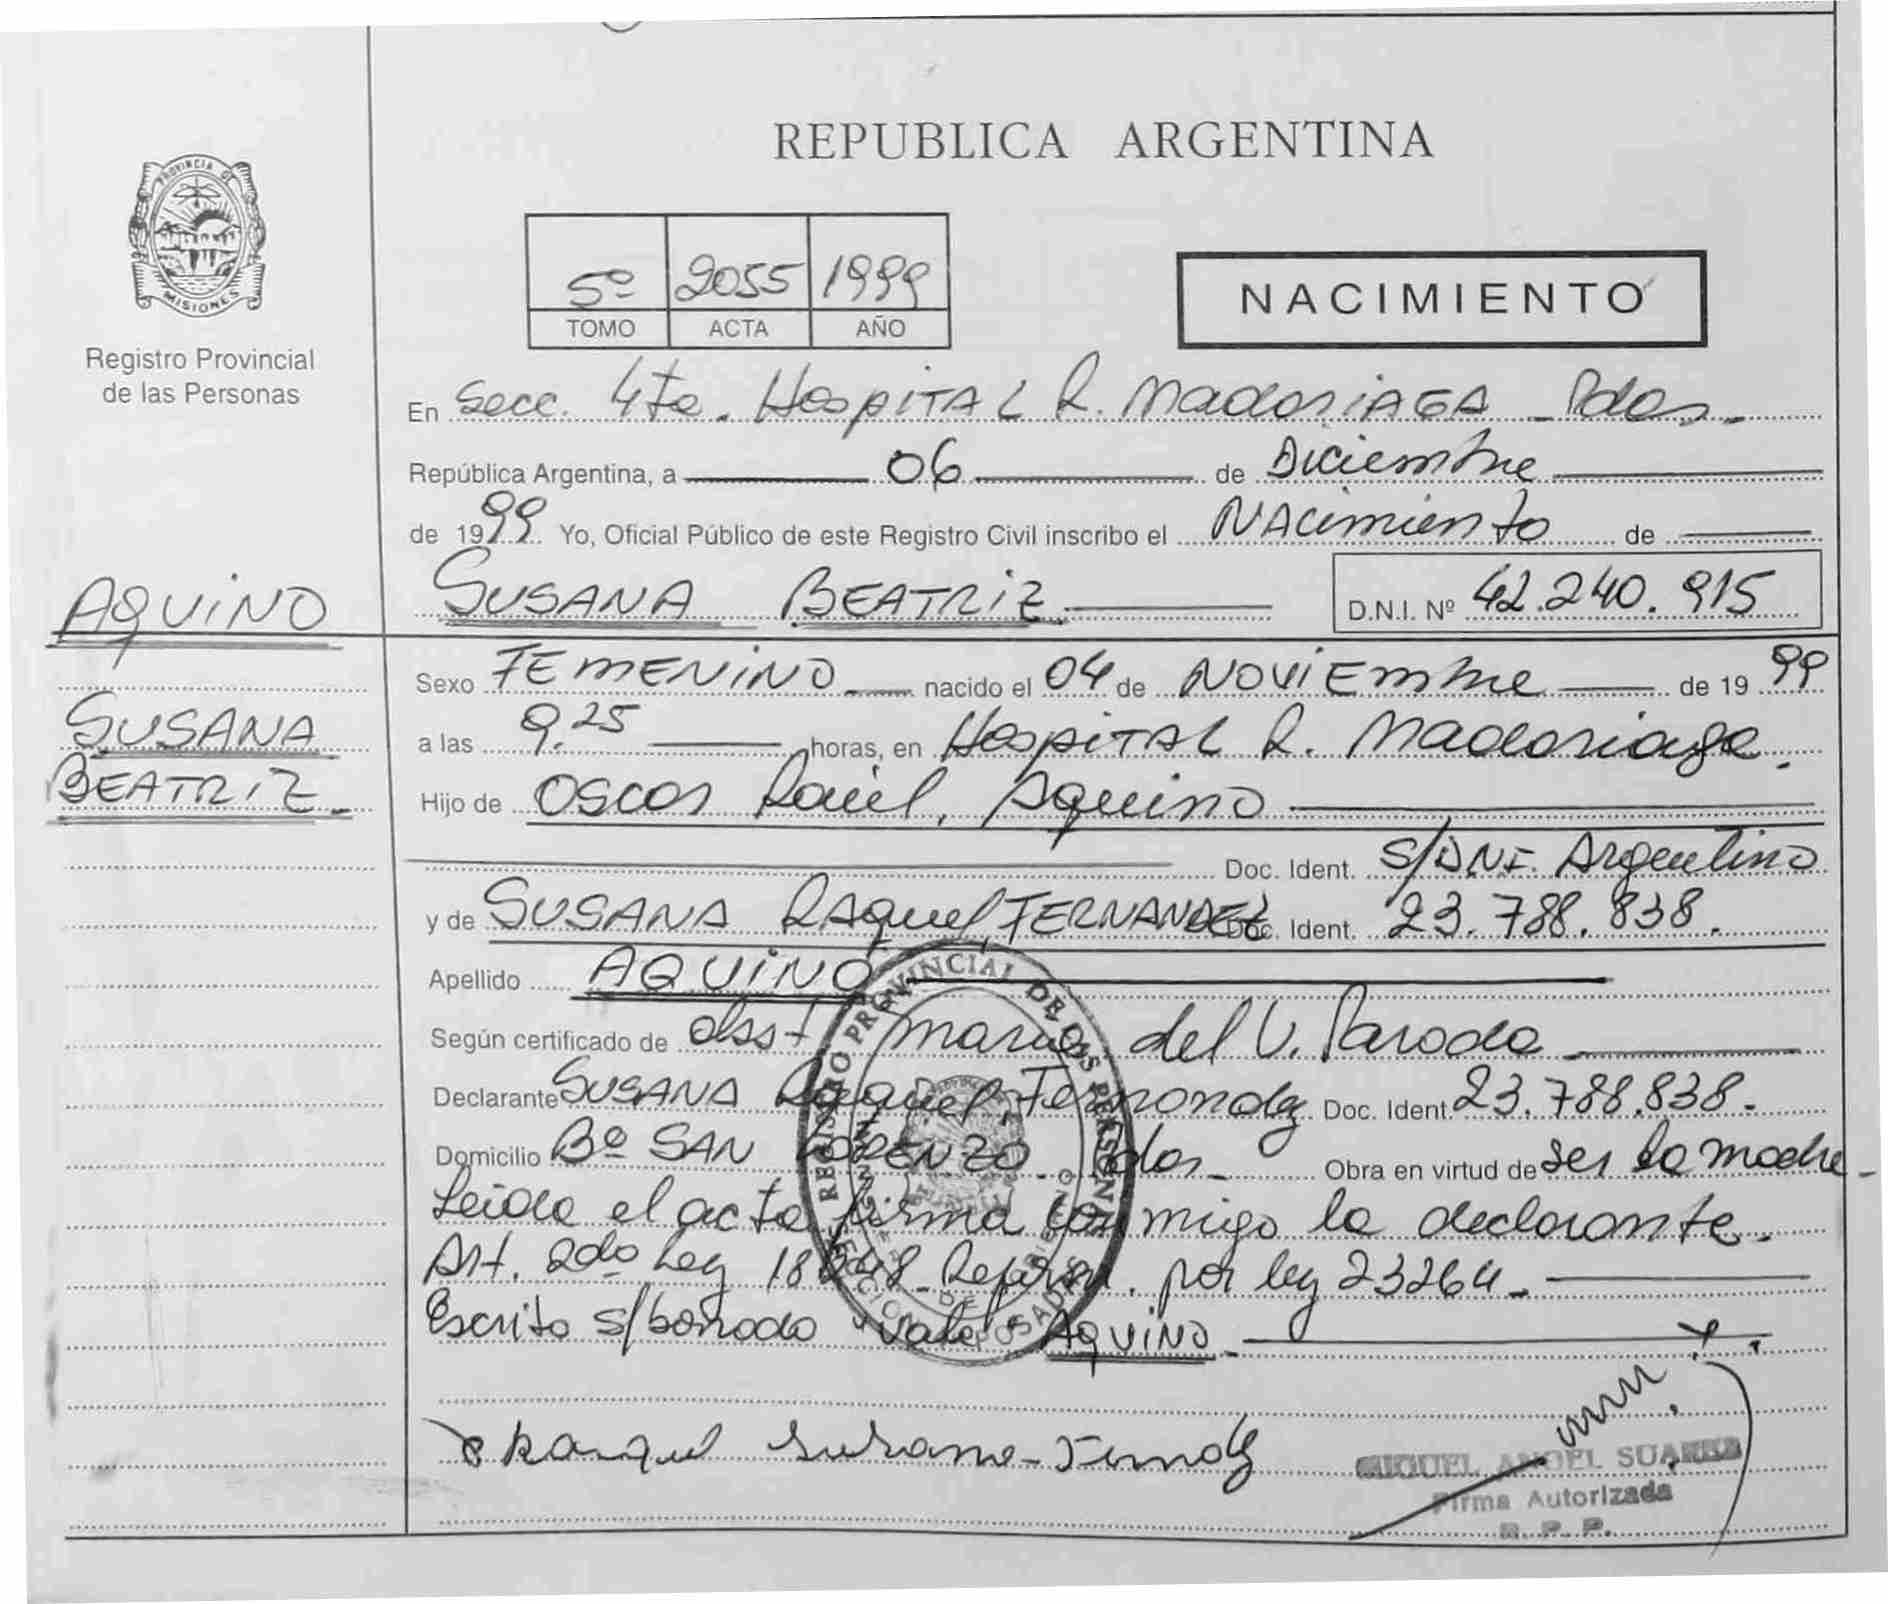 REPUBLICA ARGENTINA
PROVINCIA DE
MISIONES
Registro Provincial
de las Personas
5º 2055 1999
TOMO ACTA AÑO
NACIMIENTO
En Secc. 4ta. HOSPITAL R. MADARIAGA - Pdas -
República Argentina, a 06 de Diciembre
de 1999 Yo, Oficial Público de este Registro Civil inscribo el NAcimiento de
SUSANA BEATRIZ D.N.I. Nº 42.240.915
AQUINO
SUSANA
BEATRIZ -
Sexo FEMENINO nacido el 04 de NOVIEmbre de 19 99
a las 9.25 horas, en HospITAL R. Madariaga.
Hijo de Oscar Raúl, Aquino
Doc. Ident. S/DNI. Argentino
y de SUSANA RAquel, FERNANDEZ Doc. Ident. 23.788.838.
Apellido AQUINO
Según certificado de obst maria del V. Paroda
Declarante SUSANA Raquel, Fernandez Doc. Ident. 23.788.838.
Domicilio Bº SAN LORENZO - Pdas - Obra en virtud de ser la madre -
Leida el acta firma conmigo la declarante.
Art. 2do Ley 18248 - Reform. por ley 23264 -
Escrito s/borrado Vale: AQUINO -
REGISTRO PROVINCIAL DE LAS PERSONAS
POSADAS
Raquel Susana Fernandez
MIGUEL ANGEL SUAREZ
Firma Autorizada
R. P. P.